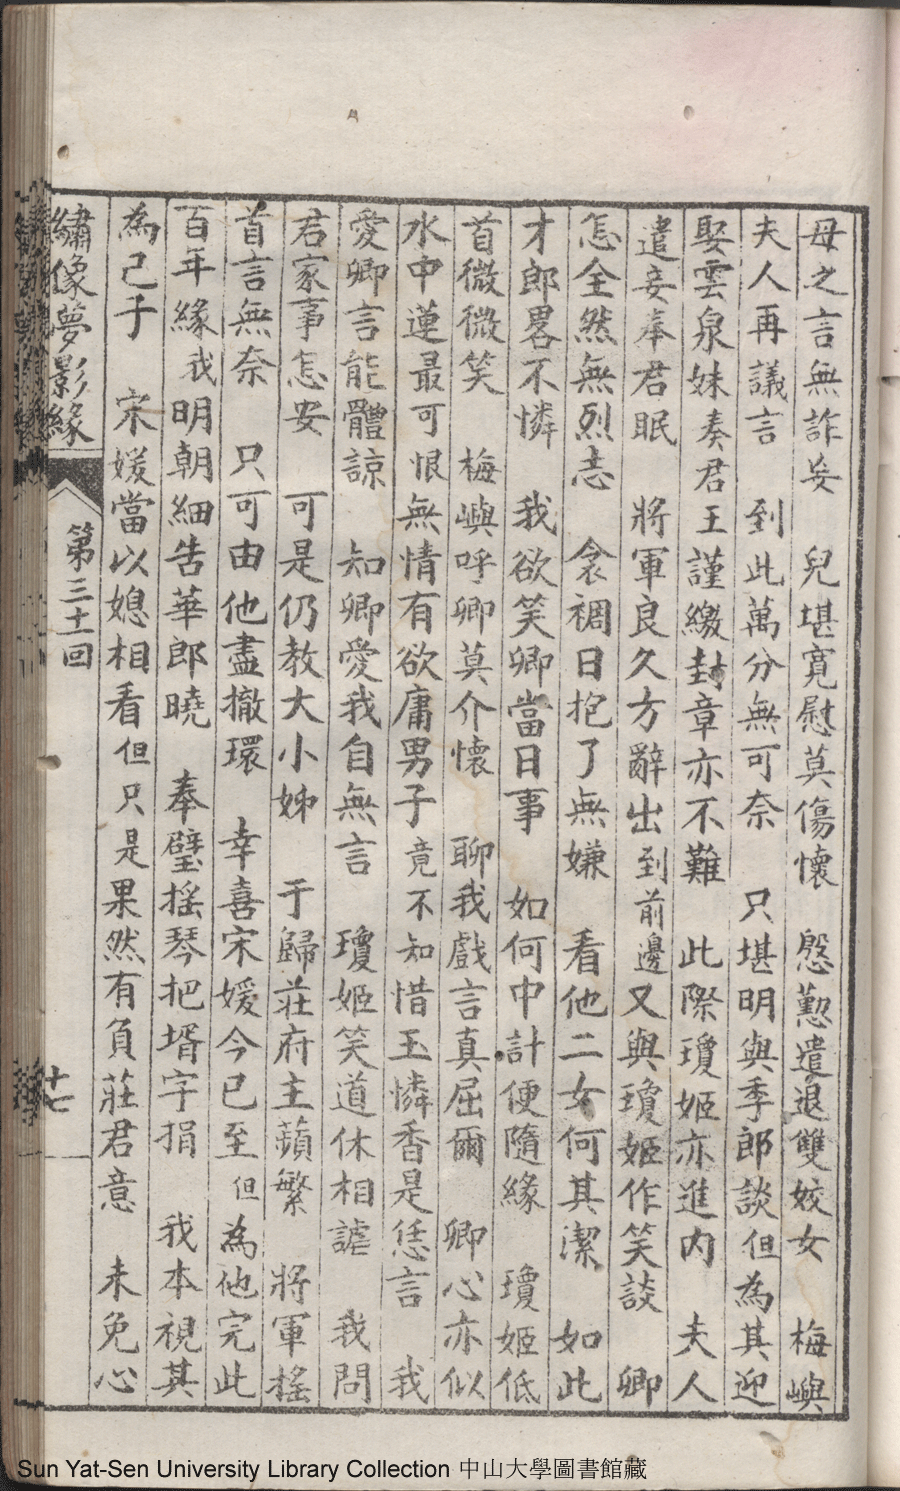 母之言無詐妄　兒堪寬慰莫傷懷　慇懃遣退雙姣女　梅嶼
夫人再議言　到此萬分無可奈　只堪明與季郎談但為其迎
娶雲泉妹奏君王謹繳封章亦不難　此際瓊姬亦進內　夫人
遣妾奉君眠　將軍良久方辭出到前邊又與瓊姬作笑談　卿
怎全然無烈志　衾裯日抱了無嫌　看他二女何其潔　如此
才郎畧不憐　我欲笑卿當日事　如何中計便隨緣　瓊姬低
首微微笑　梅嶼呼卿莫介懷　聊我戲言真屈爾　卿心亦似
水中蓮最可恨無情有欲庸男子竟不知惜玉憐香是恁言　我
愛卿言能體諒　知卿愛我自無言　瓊姬笑道休相謔　我問
君家事怎安　可是仍教大小姊　于歸莊府主蘋繁　將軍搖
首言無奈　只可由他盡撤環　幸喜宋媛今已至但為他完此
百年緣我明朝細告華郎曉　奉璧搖琴把壻字捐　我本視其
為己子　宋媛當以媳相看但只是果然有負莊君意　未免心
繡像夢影緣　第三十一回　十七
Sun Yat-Sen University Library Collection 中山大學圖書館藏